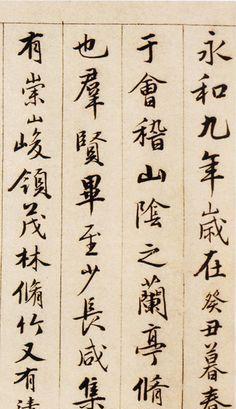 永和九年歲在癸丑暮春
于會稽山陰之蘭亭脩
也羣賢畢至少長咸集
有崇山峻領茂林脩竹又有清